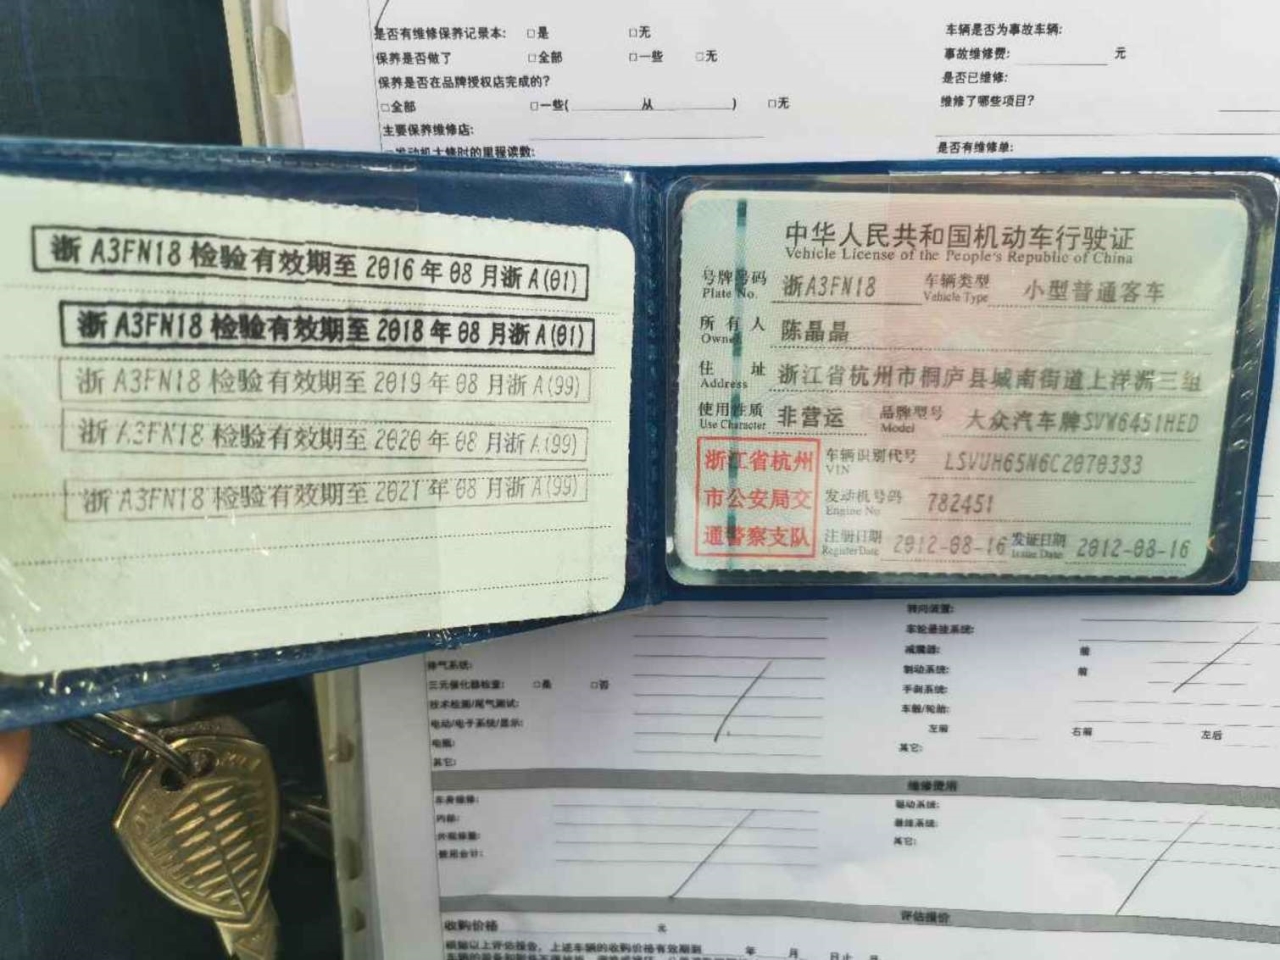 是否有维修保养记录本: □是 □无
车辆是否为事故车辆:
保养是否做了 □全部 □一些 □无
事故维修费: 元
保养是否在品牌授权店完成的?
是否已维修:
□全部 □一些( 从 ) □无
维修了哪些项目?
主要保养维修店:
□发动机大修时的里程读数:
是否有维修单:
浙 A3FN18 检验有效期至 2016 年 08 月浙 A(01)
浙 A3FN18 检验有效期至 2018 年 08 月浙 A(01)
浙 A3FN18 检验有效期至 2019 年 08 月浙 A(99)
浙 A3FN18 检验有效期至 2020 年 08 月浙 A(99)
浙 A3FN18 检验有效期至 2021 年 08 月浙 A(99)
中华人民共和国机动车行驶证
Vehicle License of the People's Republic of China
号牌号码 浙A3FN18 车辆类型 小型普通客车
Plate No. Vehicle Type
所有人 陈晶晶
Owner
住址 浙江省杭州市桐庐县城南街道上洋洲三组
Address
使用性质 非营运 品牌型号 大众汽车牌SVW6451HED
Use Character Model
浙江省杭州
市公安局交
通警察支队
车辆识别代号 LSVUH65N6C2070333
VIN
发动机号码 782451
Engine No.
注册日期 2012-08-16 发证日期 2012-08-16
Register Date Issue Date
转向装置:
车轮悬挂系统:
排气系统:
减震器: 前
三元催化器检查: □是 □否
制动系统: 前
技术检测/尾气测试:
手刹系统:
电动/电子系统/显示:
车胎/轮胎:
左前 右前 左后
电瓶:
其它:
其它:
维修费用
车身维修:
驱动系统:
内部:
悬挂系统:
其它:
费用合计:
评估报价
收购价格 元
根据以上评估报告, 上述车辆的收购价格有效期到 年 月 日止